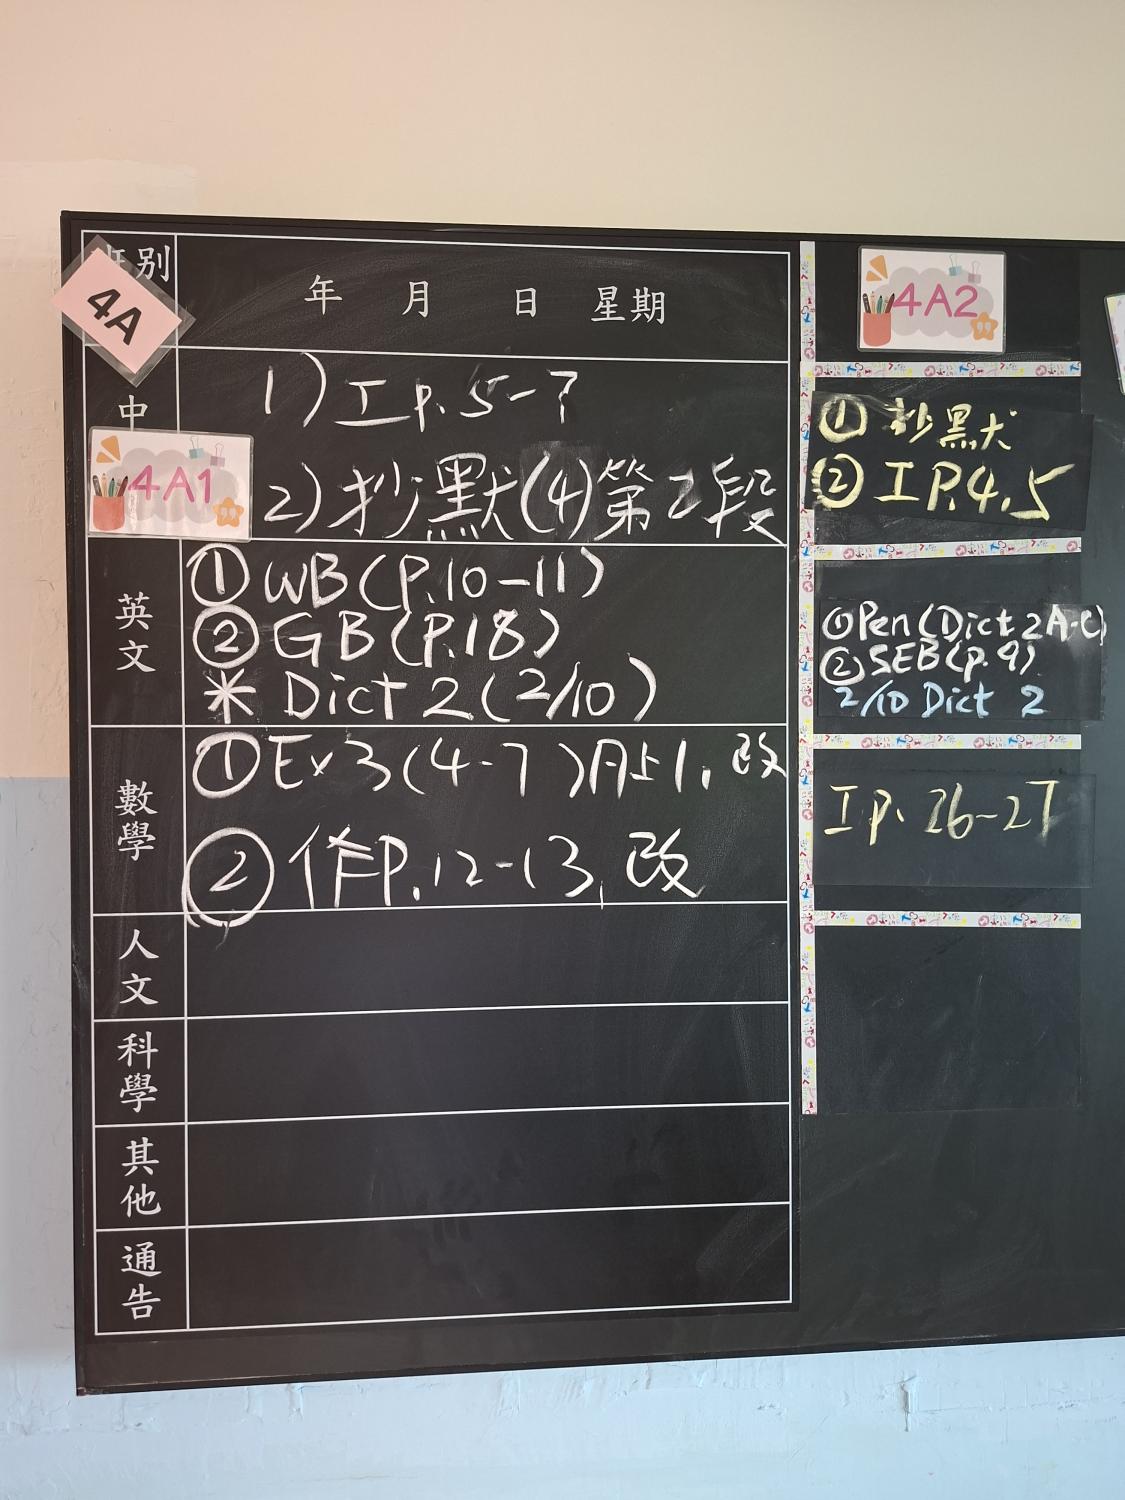 班別
4A
年 月 日 星期
中
4A1
1) 工 p. 5-7
2) 抄、默(4)第2段
英文
① WB (P.10-11)
② GB (P.18)
* Dict 2 (2/10)
數學
① Ex 3 (4-7) 改
② 作P. 12-13, 改
人文
科學
其他
通告
4A2
① 抄默
② 工 P.4, 5
① Pen (Dict 2 A-C)
② SEB (p. 9)
2/10 Dict 2
工 p. 26-27